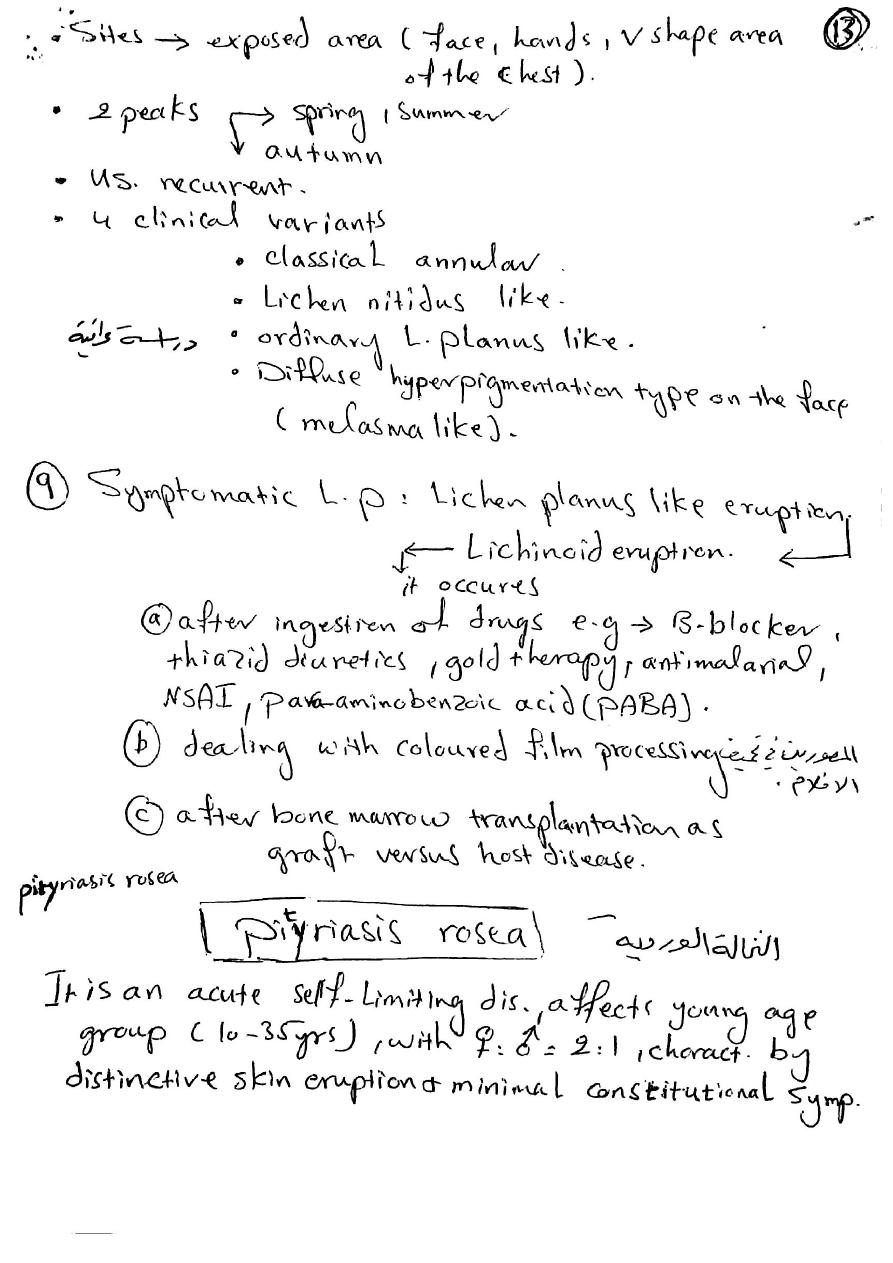 • Sites → exposed area ( face, hands, V shape area
13
of the chest ).
• 2 peaks → spring, summer
autumn
• US. recurrent.
• 4 clinical variants
• classical annular.
• Lichen nitidus like.
• ordinary L. planus like.
• Diffuse hyperpigmentation type on the face
( melasma like).
9 Symptomatic L.p : Lichen planus like eruption.
← Lichinoid eruption. ←
it occures
a after ingestion of drugs e.g → B-blocker,
thiazid diuretics, gold therapy, antimalarial,
NSAI, para-aminobenzoic acid (PABA).
b dealing with coloured film processing
الافلام.
c after bone marrow transplantation as
graft versus host disease.
pityriasis rosea
pityriasis rosea
النخالة الوردية
It is an acute self-Limiting dis., affects young age
group ( 10-35yrs), with ♀:♂ = 2:1, charact. by
distinctive skin eruption & minimal constitutional symp.